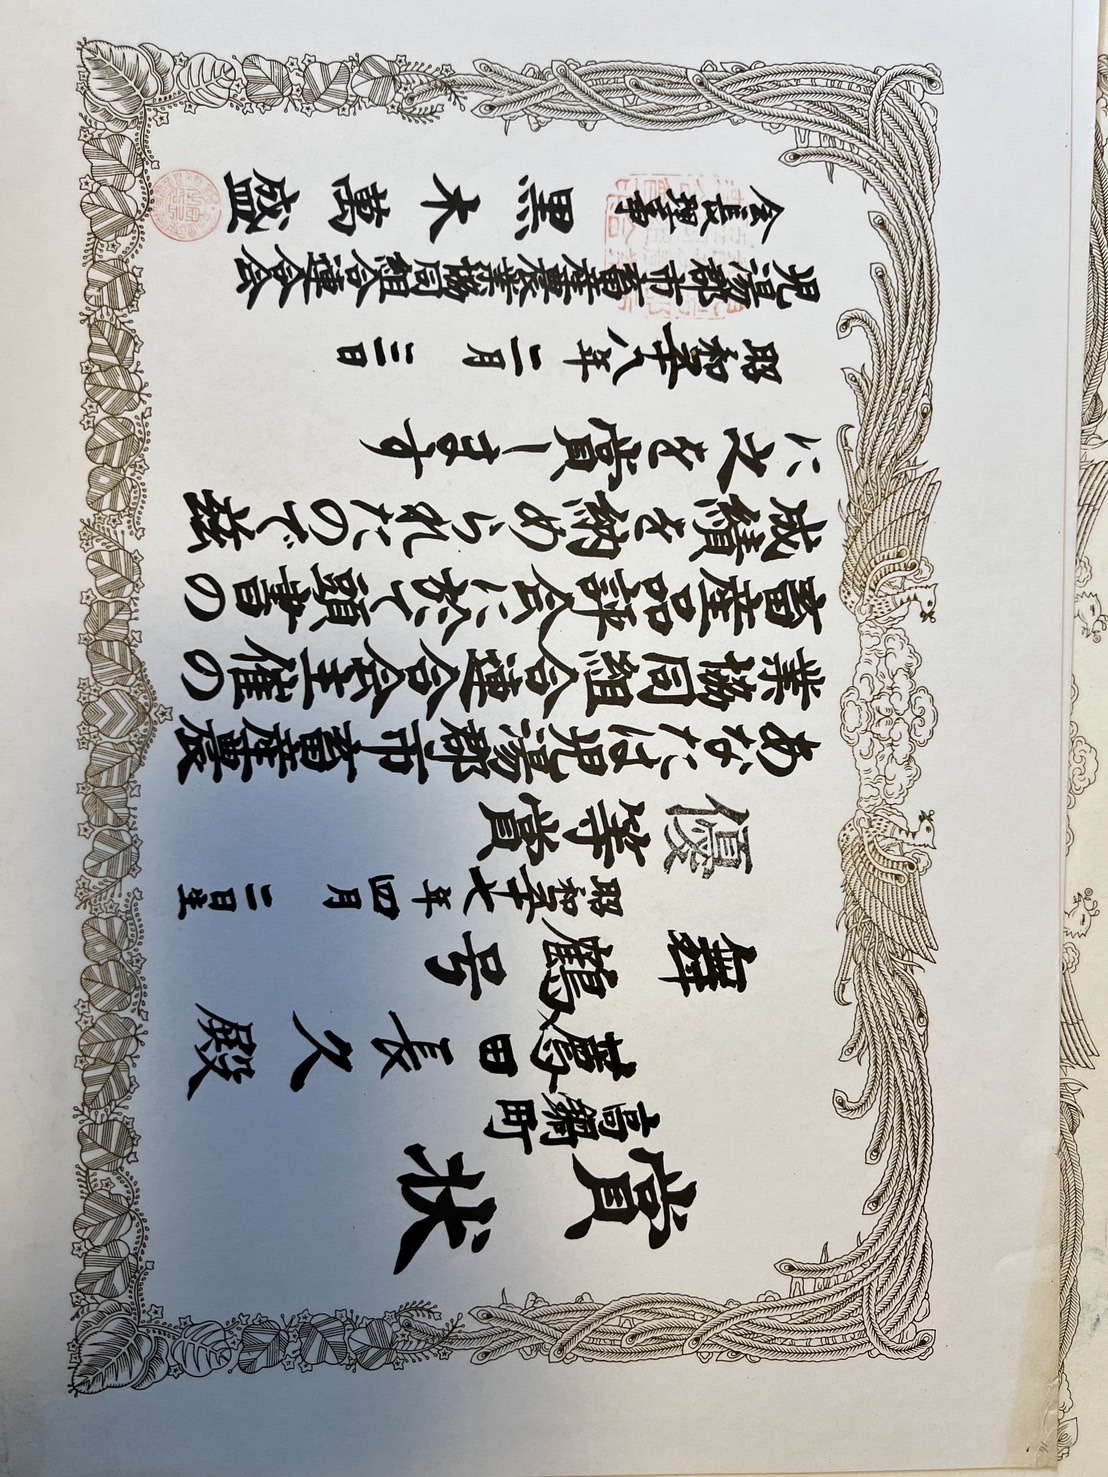 賞状
高鍋町
萬田長久殿
舞鶴号
昭和五十七年四月二日生
優等賞
あなたは児湯郡市畜産農
業協同組合連合会主催の
畜産品評会に於て頭書の
成績を納められたので茲
に之を賞します
昭和五十八年二月二三日
児湯郡市畜産農業協同組合連合会
会長理事 黒木萬盛